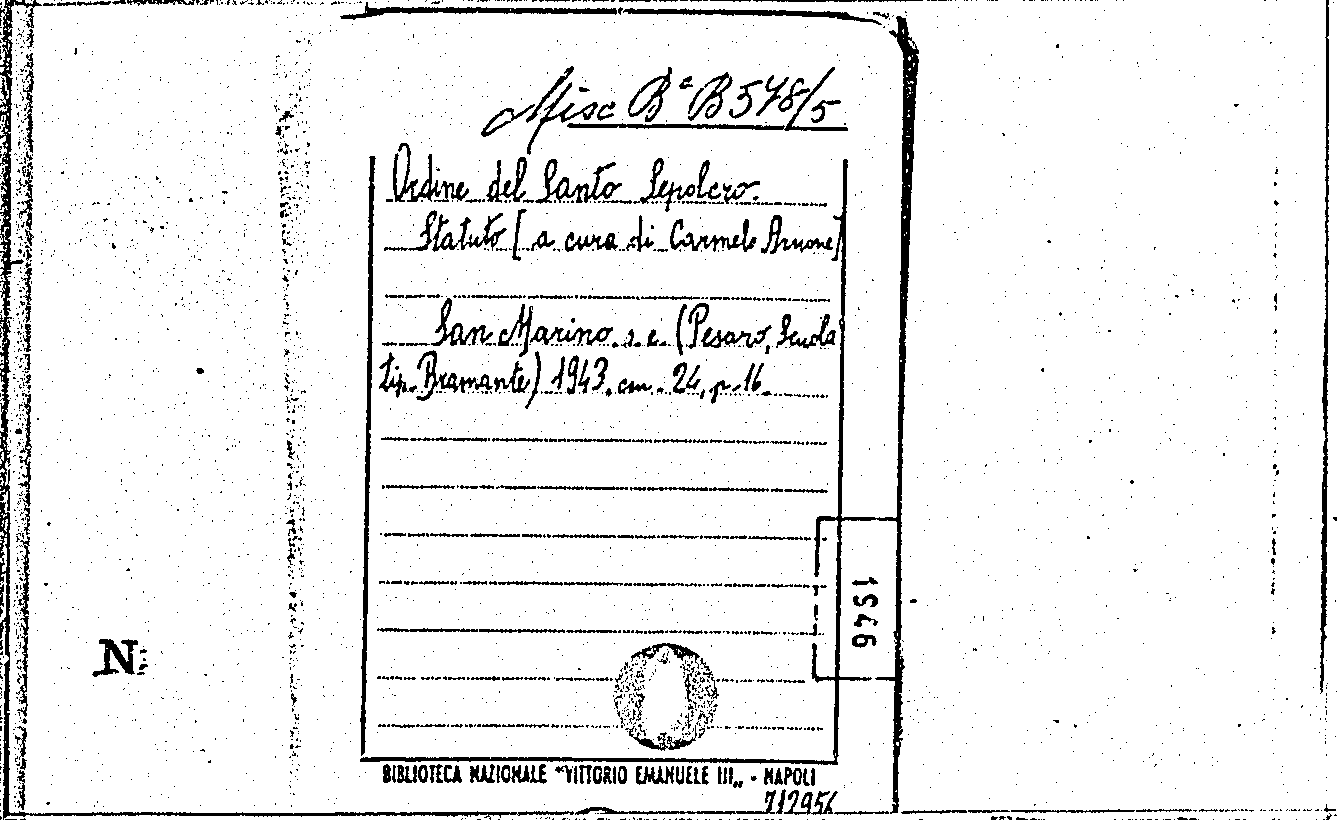 Misc Bª B 548/5
Ordine del Santo Sepolcro.
Statuto [a cura di Carmelo Arnone]
San Marino. s. e. (Pesaro, Scuola
tip. Bramante) 1943. cm. 24, p. 16.
1946
N.
BIBLIOTECA NAZIONALE "VITTORIO EMANUELE III„ - NAPOLI
712956